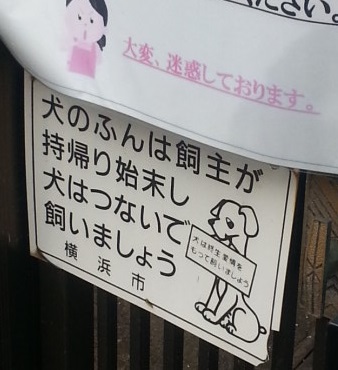 ください。
大変、迷惑しております。
犬のふんは飼主が
持帰り始末し
犬はつないで
飼いましょう
横浜市
犬は終生愛情を
もって飼いましょう